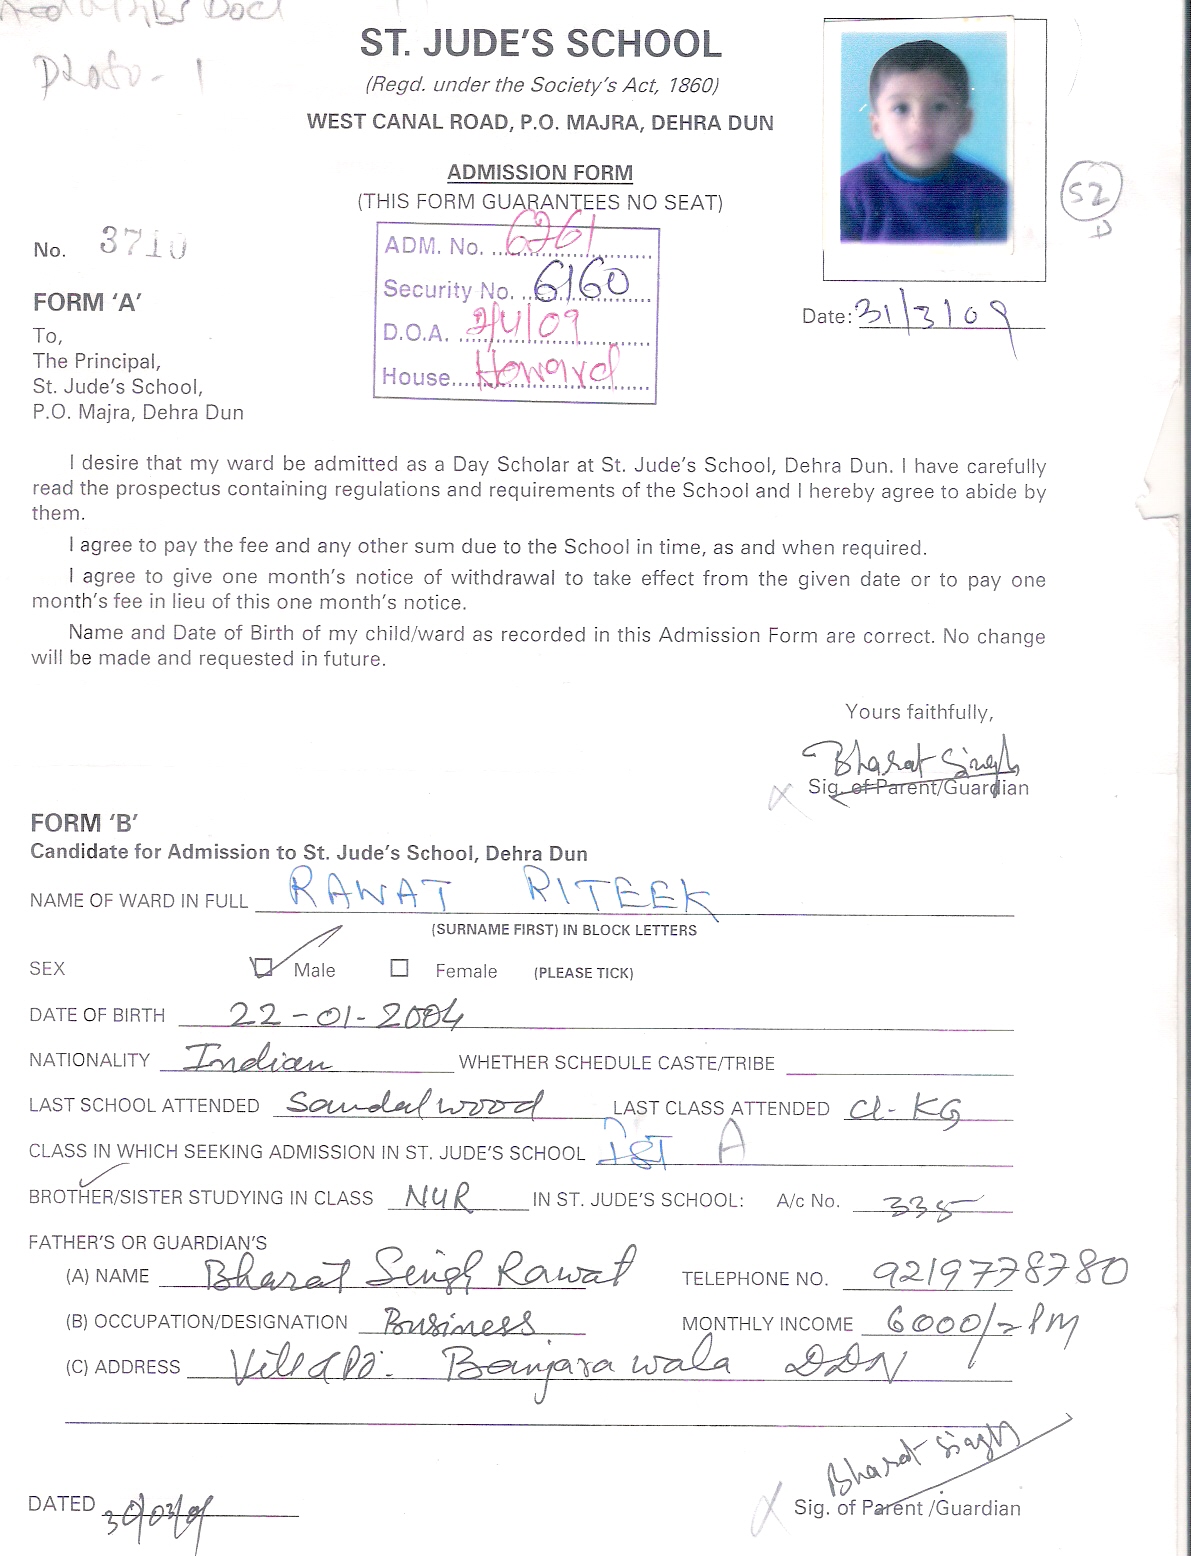 Photo - 1
ST. JUDE'S SCHOOL
(Regd. under the Society's Act, 1860)
WEST CANAL ROAD, P.O. MAJRA, DEHRA DUN
ADMISSION FORM
(THIS FORM GUARANTEES NO SEAT)
52
D
No. 3710
ADM. No. 6261
Security No. 6160
D.O.A. 2/4/09
House Howard
Date: 31/3/09
FORM 'A'
To,
The Principal,
St. Jude's School,
P.O. Majra, Dehra Dun
I desire that my ward be admitted as a Day Scholar at St. Jude's School, Dehra Dun. I have carefully
read the prospectus containing regulations and requirements of the School and I hereby agree to abide by
them.
I agree to pay the fee and any other sum due to the School in time, as and when required.
I agree to give one month's notice of withdrawal to take effect from the given date or to pay one
month's fee in lieu of this one month's notice.
Name and Date of Birth of my child/ward as recorded in this Admission Form are correct. No change
will be made and requested in future.
Yours faithfully,
Bharat Singh
Sig. of Parent/Guardian
FORM 'B'
Candidate for Admission to St. Jude's School, Dehra Dun
NAME OF WARD IN FULL RAWAT RITEEK
(SURNAME FIRST) IN BLOCK LETTERS
SEX Male Female (PLEASE TICK)
DATE OF BIRTH 22-01-2004
NATIONALITY Indian WHETHER SCHEDULE CASTE/TRIBE
LAST SCHOOL ATTENDED Sandalwood LAST CLASS ATTENDED KG
CLASS IN WHICH SEEKING ADMISSION IN ST. JUDE'S SCHOOL IST A
BROTHER/SISTER STUDYING IN CLASS NUR IN ST. JUDE'S SCHOOL: A/c No. 335
FATHER'S OR GUARDIAN'S
(A) NAME Bharat Singh Rawat TELEPHONE NO. 9219778780
(B) OCCUPATION/DESIGNATION Business MONTHLY INCOME 6000/= PM
(C) ADDRESS Vill & PO. Banjarawala DDN
Bharat Singh
DATED 30/03/09 Sig. of Parent /Guardian